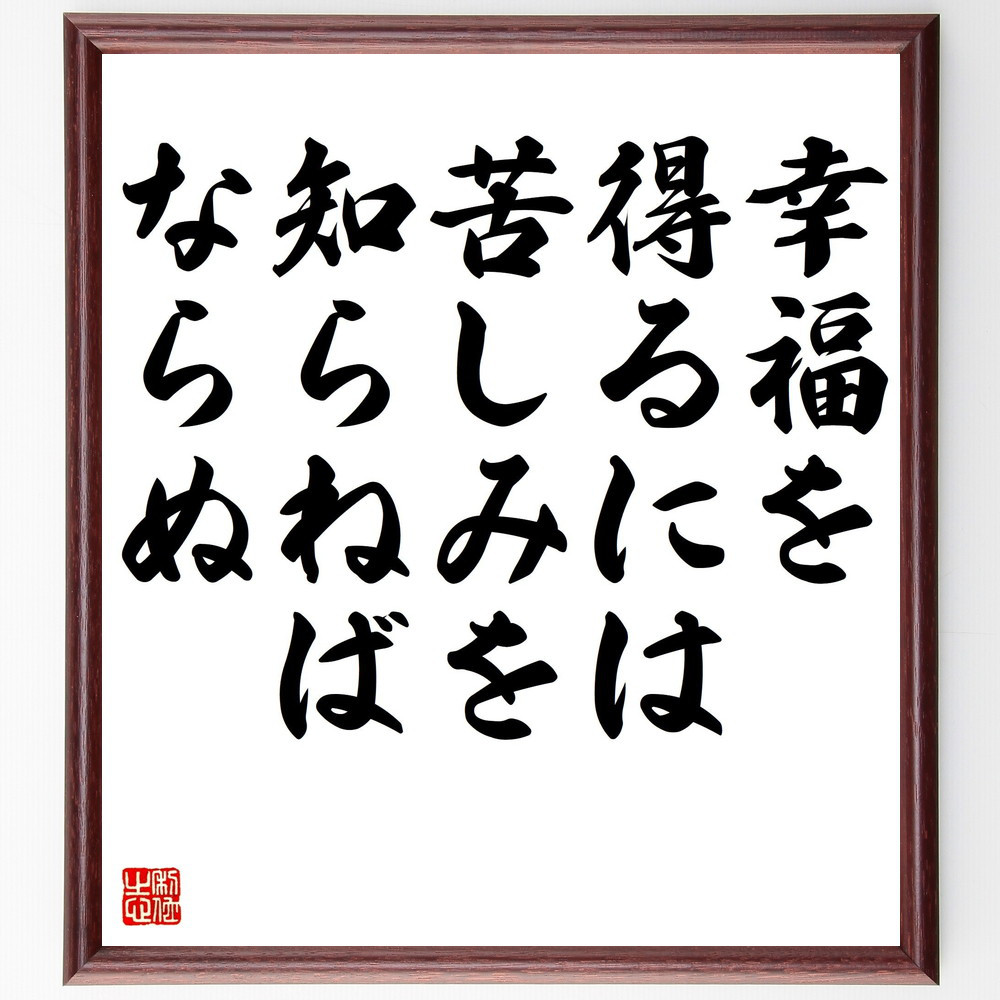 幸福を
得るには
苦しみを
知らねば
ならぬ